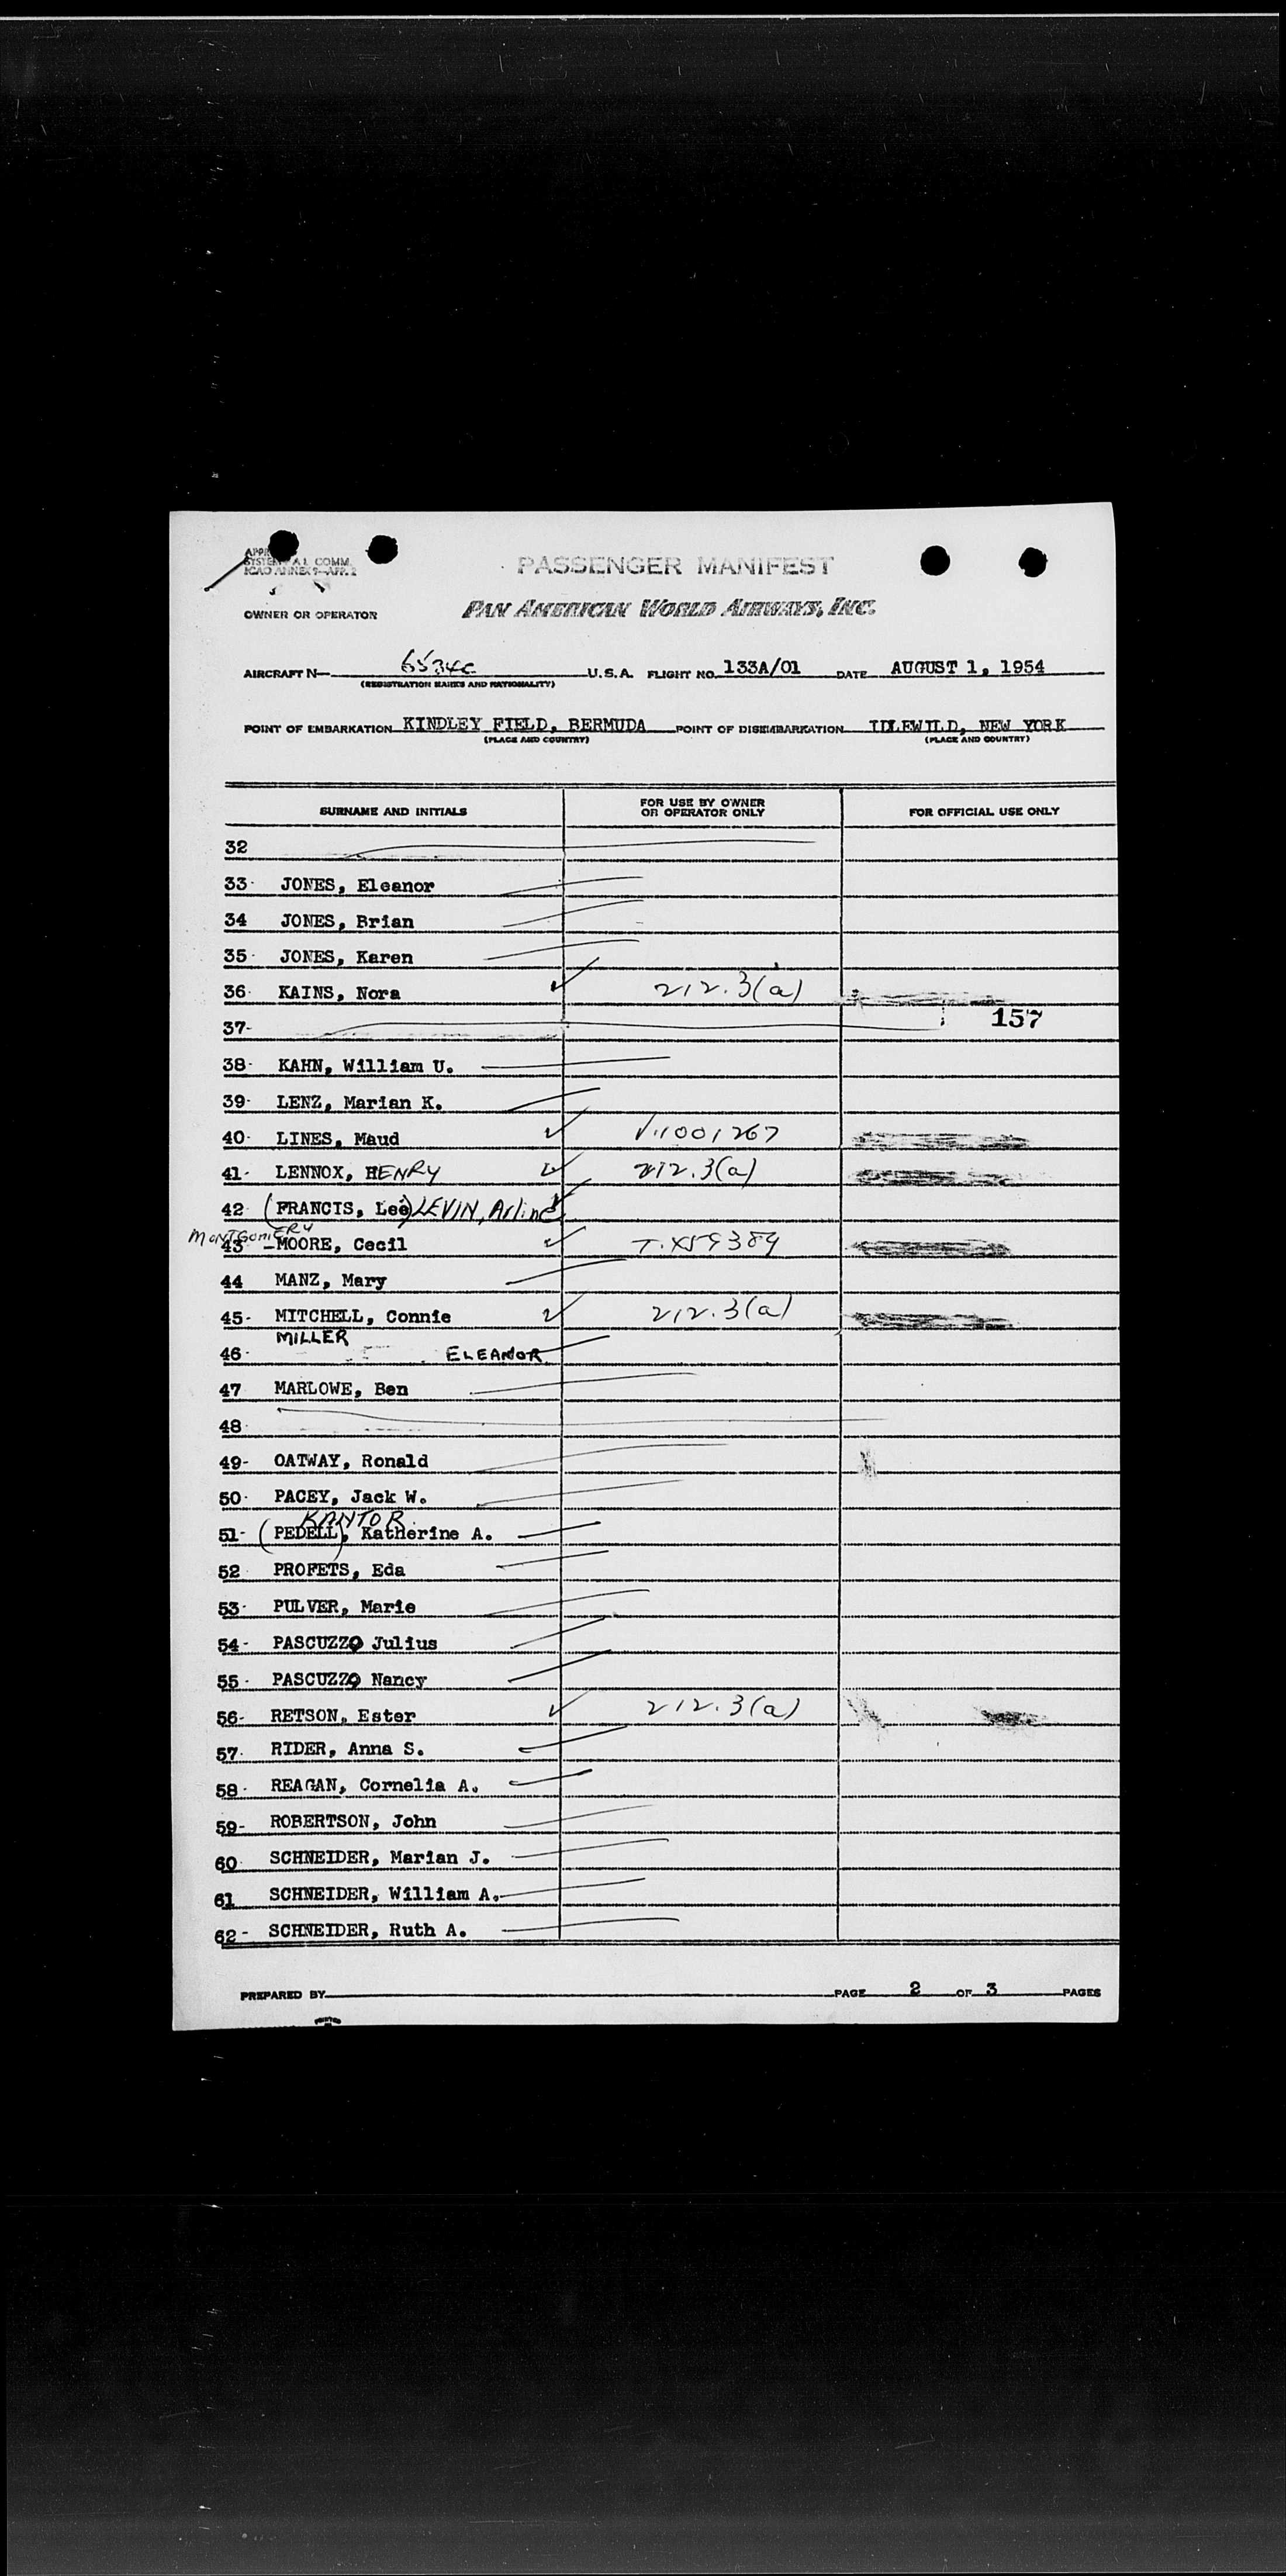 APPR
SYSTEM A L COMM.
ICAO ANNEX 9-APP. 2
PASSENGER MANIFEST
OWNER OR OPERATOR PAN AMERICAN WORLD AIRWAYS, INC.
AIRCRAFT N- 6534C U.S.A. FLIGHT NO. 133A/01 DATE AUGUST 1, 1954
(REGISTRATION MARKS AND NATIONALITY)
POINT OF EMBARKATION KINDLEY FIELD, BERMUDA POINT OF DISEMBARKATION IDLEWILD, NEW YORK
(PLACE AND COUNTRY) (PLACE AND COUNTRY)
SURNAME AND INITIALS FOR USE BY OWNER OR OPERATOR ONLY FOR OFFICIAL USE ONLY
32
33- JONES, Eleanor
34 JONES, Brian
35- JONES, Karen
36- KAINS, Nora 212.3(a)
37- 157
38- KAHN, William U.
39- LENZ, Marian K.
40- LINES, Maud V.1001267
41- LENNOX, HENRY 212.3(a)
42- (FRANCIS, Lee) LEVIN, Arline
MONTGOMERY
43 -MOORE, Cecil T.X59384
44 MANZ, Mary
45- MITCHELL, Connie 212.3(a)
MILLER
46- ELEANOR
47 MARLOWE, Ben
48-
49- OATWAY, Ronald
50- PACEY, Jack W.
KANTOR
51- (PEDELL), Katherine A.
52 PROFETS, Eda
53- PULVER, Marie
54- PASCUZZO Julius
55- PASCUZZO Nancy
56- RETSON, Ester 212.3(a)
57- RIDER, Anna S.
58- REAGAN, Cornelia A.
59- ROBERTSON, John
60 SCHNEIDER, Marian J.
61 SCHNEIDER, William A.
62- SCHNEIDER, Ruth A.
PREPARED BY PAGE 2 OF 3 PAGES